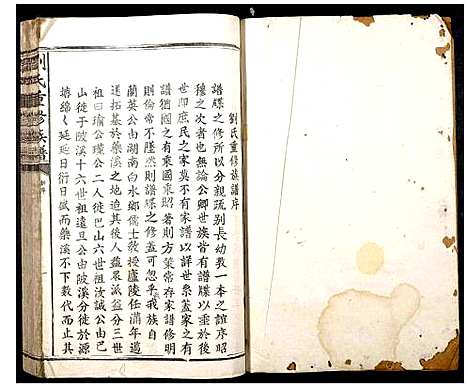 劉氏重修族譜序
譜牒之修所以分親疏別長幼敦一本之誼序昭
穆之次者也無論公卿世族皆有譜牒以垂於後
世即庶民之家莫不有以詳世系蓋家之有
譜猶國之有乘國乘昭著則方策常存家譜修明
則倫常不墜然則譜牒之修蓋可忽乎哉我族自
蘭英公由湖南白水鄉儒士敎授廬陵任滿年邁
遂拓基於藥溪之地迨其後人益眾派益分三世
祖曰瑜公璞公二人徙巴山六世祖汝誠公由巴
山徙于陂溪十六世祖遠旦公由陂溪分徙於源
塘綿〻延延日衍日盛而藥溪不下數代而止其
劉氏重修族譜